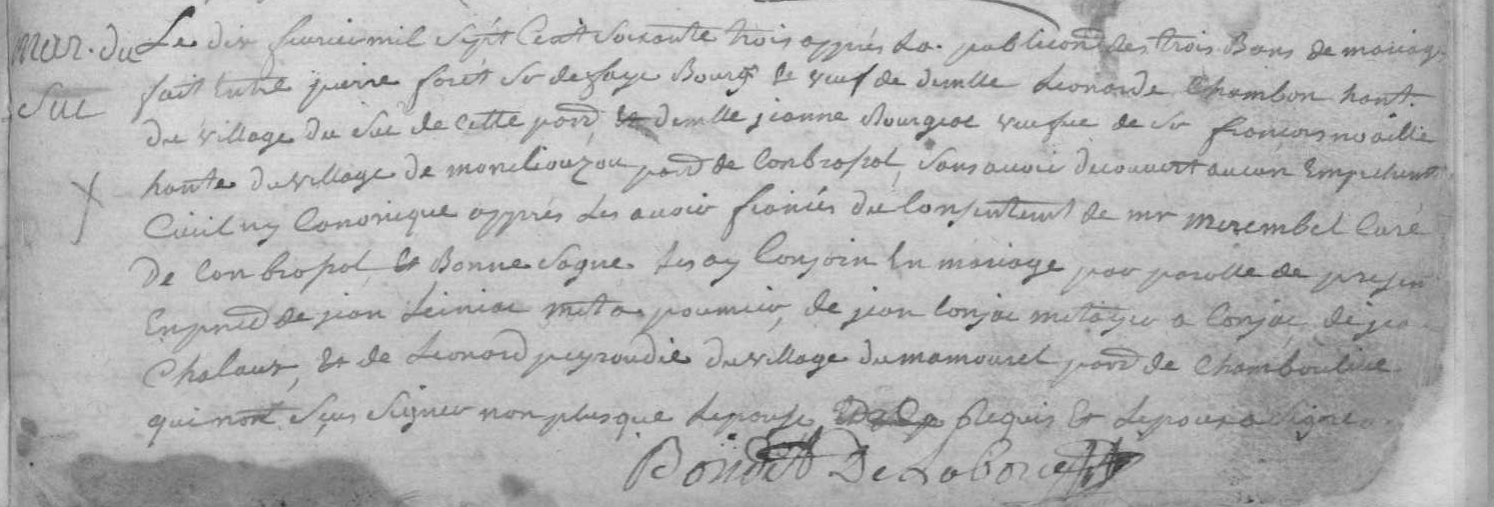 mar. du
Suc
Le dix fevrier mil sept Cent soixante trois apprés La publicaōn des trois Bans de mariage
fait Entre pierre forét Sr de faye Bourgs Et veuf de demlle Leonarde Chambon hant.
du village du Suc de Cette parsse Et demlle jeanne Bourgeoc veufue de Sr francois noaille
hante du village de par de Conbrossol, sans avoir decouvert aucun Empechent
Ciuil ny Canonique apprés Les avoir fiancés du Consentemt de mr merembel Curé
de Conbrossol, Et Bonne Sagne Les ay Conjoin En mariage par parolle de presen
En pnce de jean Leiniac meta a poumier, de jean Conjac metayer a Conjac, de jean
Chalaux, Et de Leonard peyroudie du village du mamourel parsse de Chamboulive
qui nont sçus signer non plus que Lepouse Requis Et Lepoux a signé
De Laborie